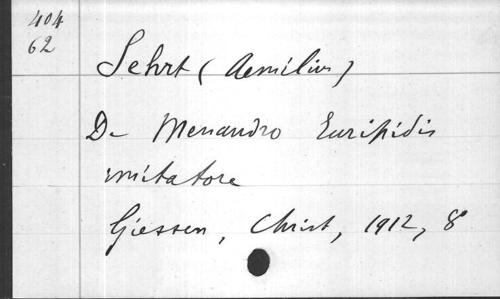 404
62
Sehrt (Aemilius)
De Menandro Euripidis
imitatore
Giessen, Christ, 1912, 8°